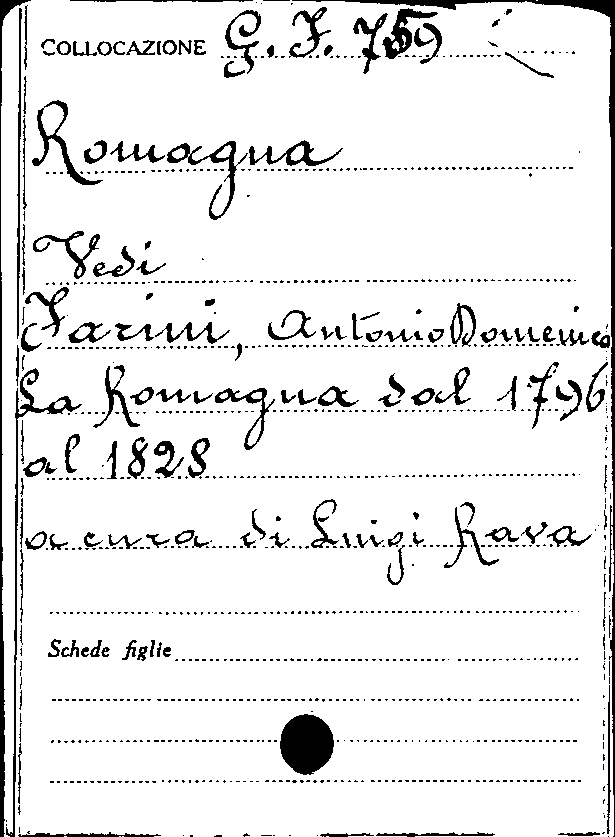 COLLOCAZIONE G. F. 759
Romagna
Vedi
Farini, Antonio Domenico
La Romagna dal 1796
al 1828
a cura di Luigi Rava
Schede figlie